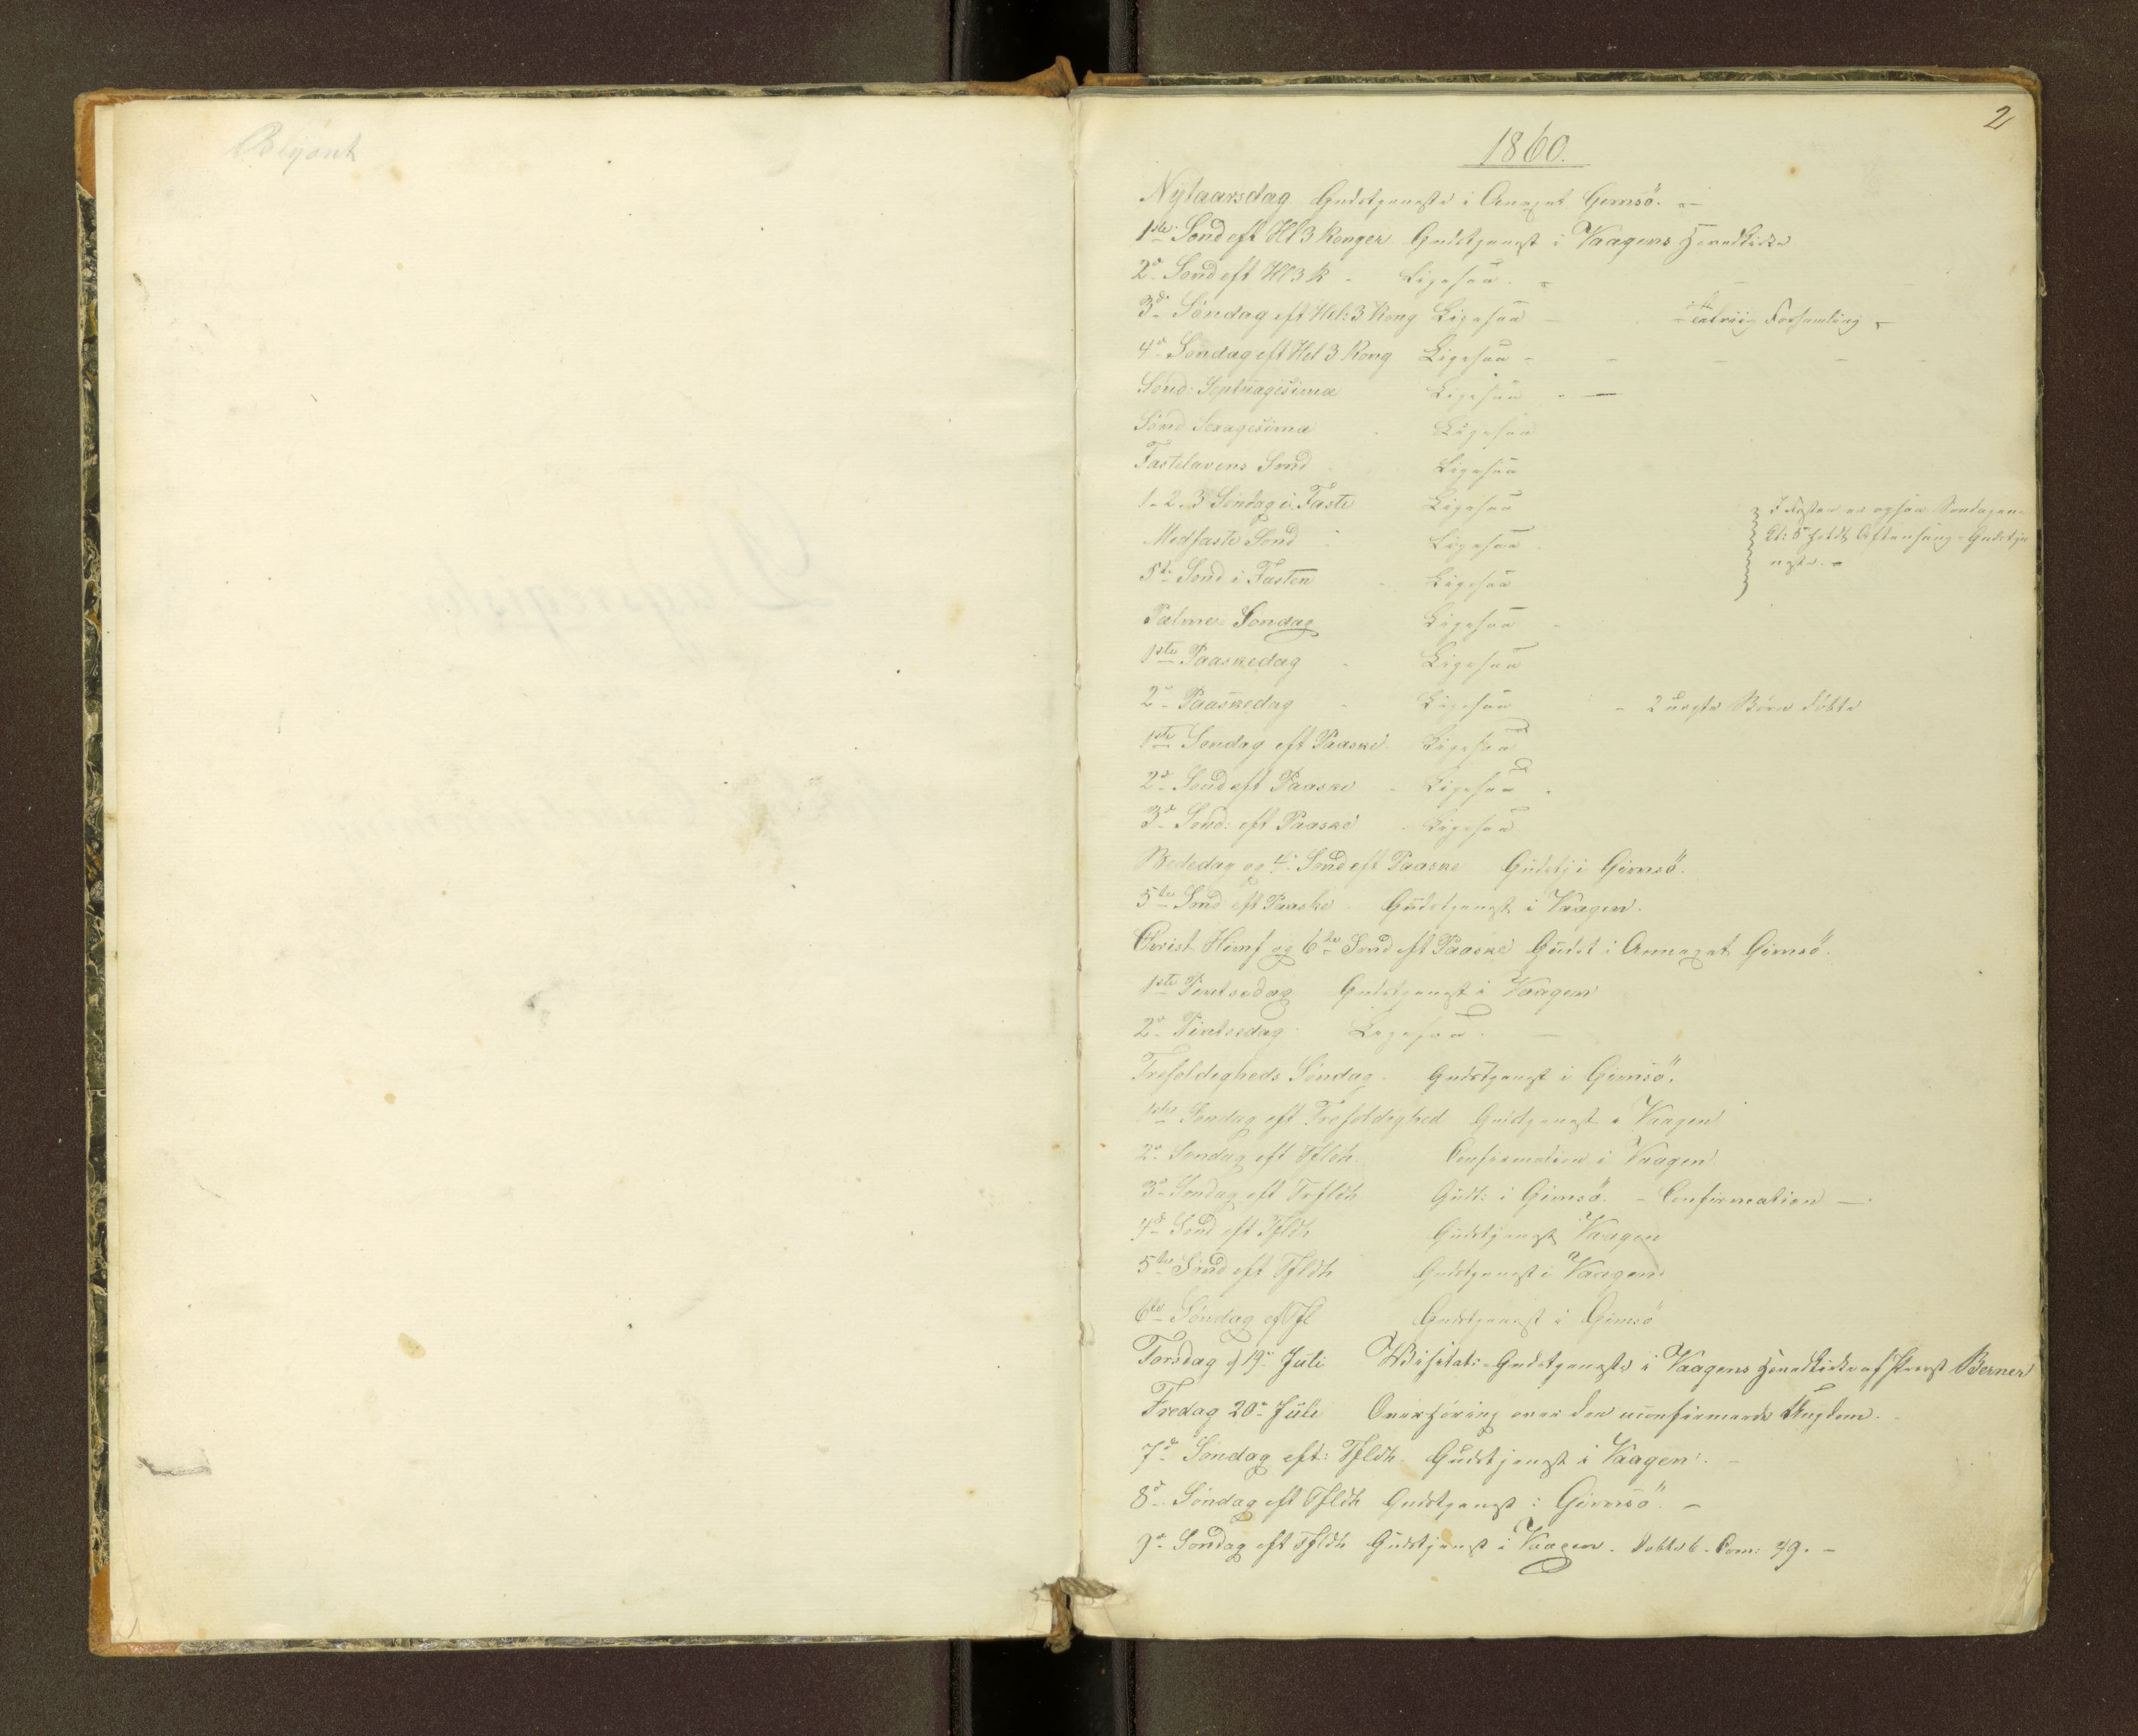 Blyant
2
1860.
Nytaarsdag Gudstjeneste i Annexet Gimsö. -
1ste Sönd eft Hl 3 Konger Gudstjenest i Vaagens Hovedkirke
2d Sönd eft Hl 3 K - Ligesaa. -
3d Söndag eft Hel: 3 Kong Ligesaa - talriig Forsamling -
4d Söndag eft Hel 3 Kong Ligesaa -
Sönd: Septuagesima Ligesaa - -
Sönd Sexagesima Ligesaa
Fastelavens Sönd Ligesaa
1-2-3 Söndag i Faste Ligesaa
I Fasten er ogsaa Söndagen
Midfaste Sönd - Ligesaa
Kl: 5 holdt Aftensang-Gudstje
neste. -
5te Sönd i Fasten Ligesaa
Palme Söndag Ligesaa -
1ste Paaskedag - Ligesaa
2d Paaskedag - Ligesaa - 2 uægte Börn döbte
1ste Söndag eft Paaske Ligesaa
2d Sönd eft Paaske - Ligesaa -
3d Sönd: eft Paaske - Ligesaa
Bededag og 4d Sönd eft Paaske Gudstj i Gimsö.
5te Sönd eft Paaske - Gudstjenest i Vaagen.
Christ Himf og 6te Sönd eft Paaske Gudst i Annexet Gimsö.
1ste Pintsedag Gudstjenest i Vaagen
2d Pintsedag Ligesaa. -
Trefoldigheds Söndag - Gudstjenest i Gimsö.
1ste Söndag eft Trefoldighed Gudstjenest i Vaagen
2d Söndag eft Tfldh. Confirmation i Vaagen
3d Söndag eft Trfldh Gudt: i Gimsö. - Confirmation -
4d Sönd eft Tfldh Gudstjenest Vaagen
5te Sönd eft Tfldh Gudstjenest i Vaagen
6te Söndag ef Tfl Gudstjenest i Gimsö
Torsdag d 19d Juli Visitats-Gudstjeneste i Vaagens Hovedkirke af Provst Berner
Fredag 20d Juli Overhöring over den uconfirmerede Ungdom.
7d Söndag eft: Tfldh. Gudstjenest i Vaagen. -
8d Söndag eft Tfldh Gudstjenest i Gimsö. -
9d Söndag eft Tfldh Gudstjenest i Vaagen. Döbte 6 - Com: 49. -